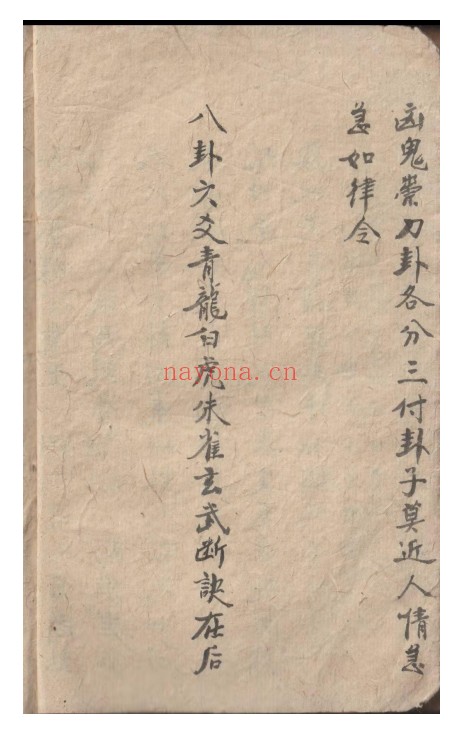 凶鬼祟力卦各分三付卦子莫近人情急
急如律令
八卦六爻青龍白虎朱雀玄武断訣在后
nayona.cn